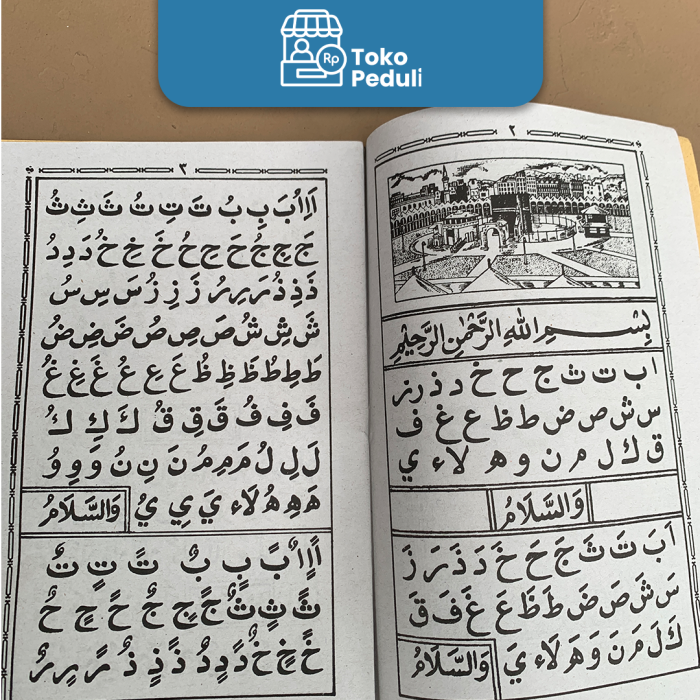 Toko
Peduli
Rp
٢
بِسْمِ اللهِ الرَّحْمٰنِ الرَّحِيْمِ
ا ب ت ث ج ح خ د ذ ر ز
س ش ص ض ط ظ ع غ ف
ق ك ل م ن و ه لا ء ي
وَالسَّلَامُ
اَ بَ تَ ثَ جَ حَ خَ دَ ذَ رَ زَ
سَ شَ صَ ضَ طَ ظَ عَ غَ فَ قَ
كَ لَ مَ نَ وَ هَ لَا ءَ يَ
وَالسَّلَامُ
٣
اَ اِ اُ بَ بِ بُ تَ تِ تُ ثَ ثِ ثُ
جَ جِ جُ حَ حِ حُ خَ خِ خُ دَ دِ دُ
ذَ ذِ ذُ رَ رِ رُ زَ زِ زُ سَ سِ سُ
شَ شِ شُ صَ صِ صُ ضَ ضِ ضُ
طَ طِ طُ ظَ ظِ ظُ عَ عِ عُ غَ غِ غُ
فَ فِ فُ قَ قِ قُ كَ كِ كُ
لَ لِ لُ مَ مِ مُ نَ نِ نُ وَ وِ وُ
هَ هِ هُ لَا ء يَ يِ يُ وَالسَّلَامُ
اً اٍ اٌ بً بٍ بٌ تً تٍ تٌ
ثً ثٍ ثٌ جً جٍ جٌ حً حٍ حٌ
خً خٍ خٌ دً دٍ دٌ ذً ذٍ ذٌ رً رٍ رٌ